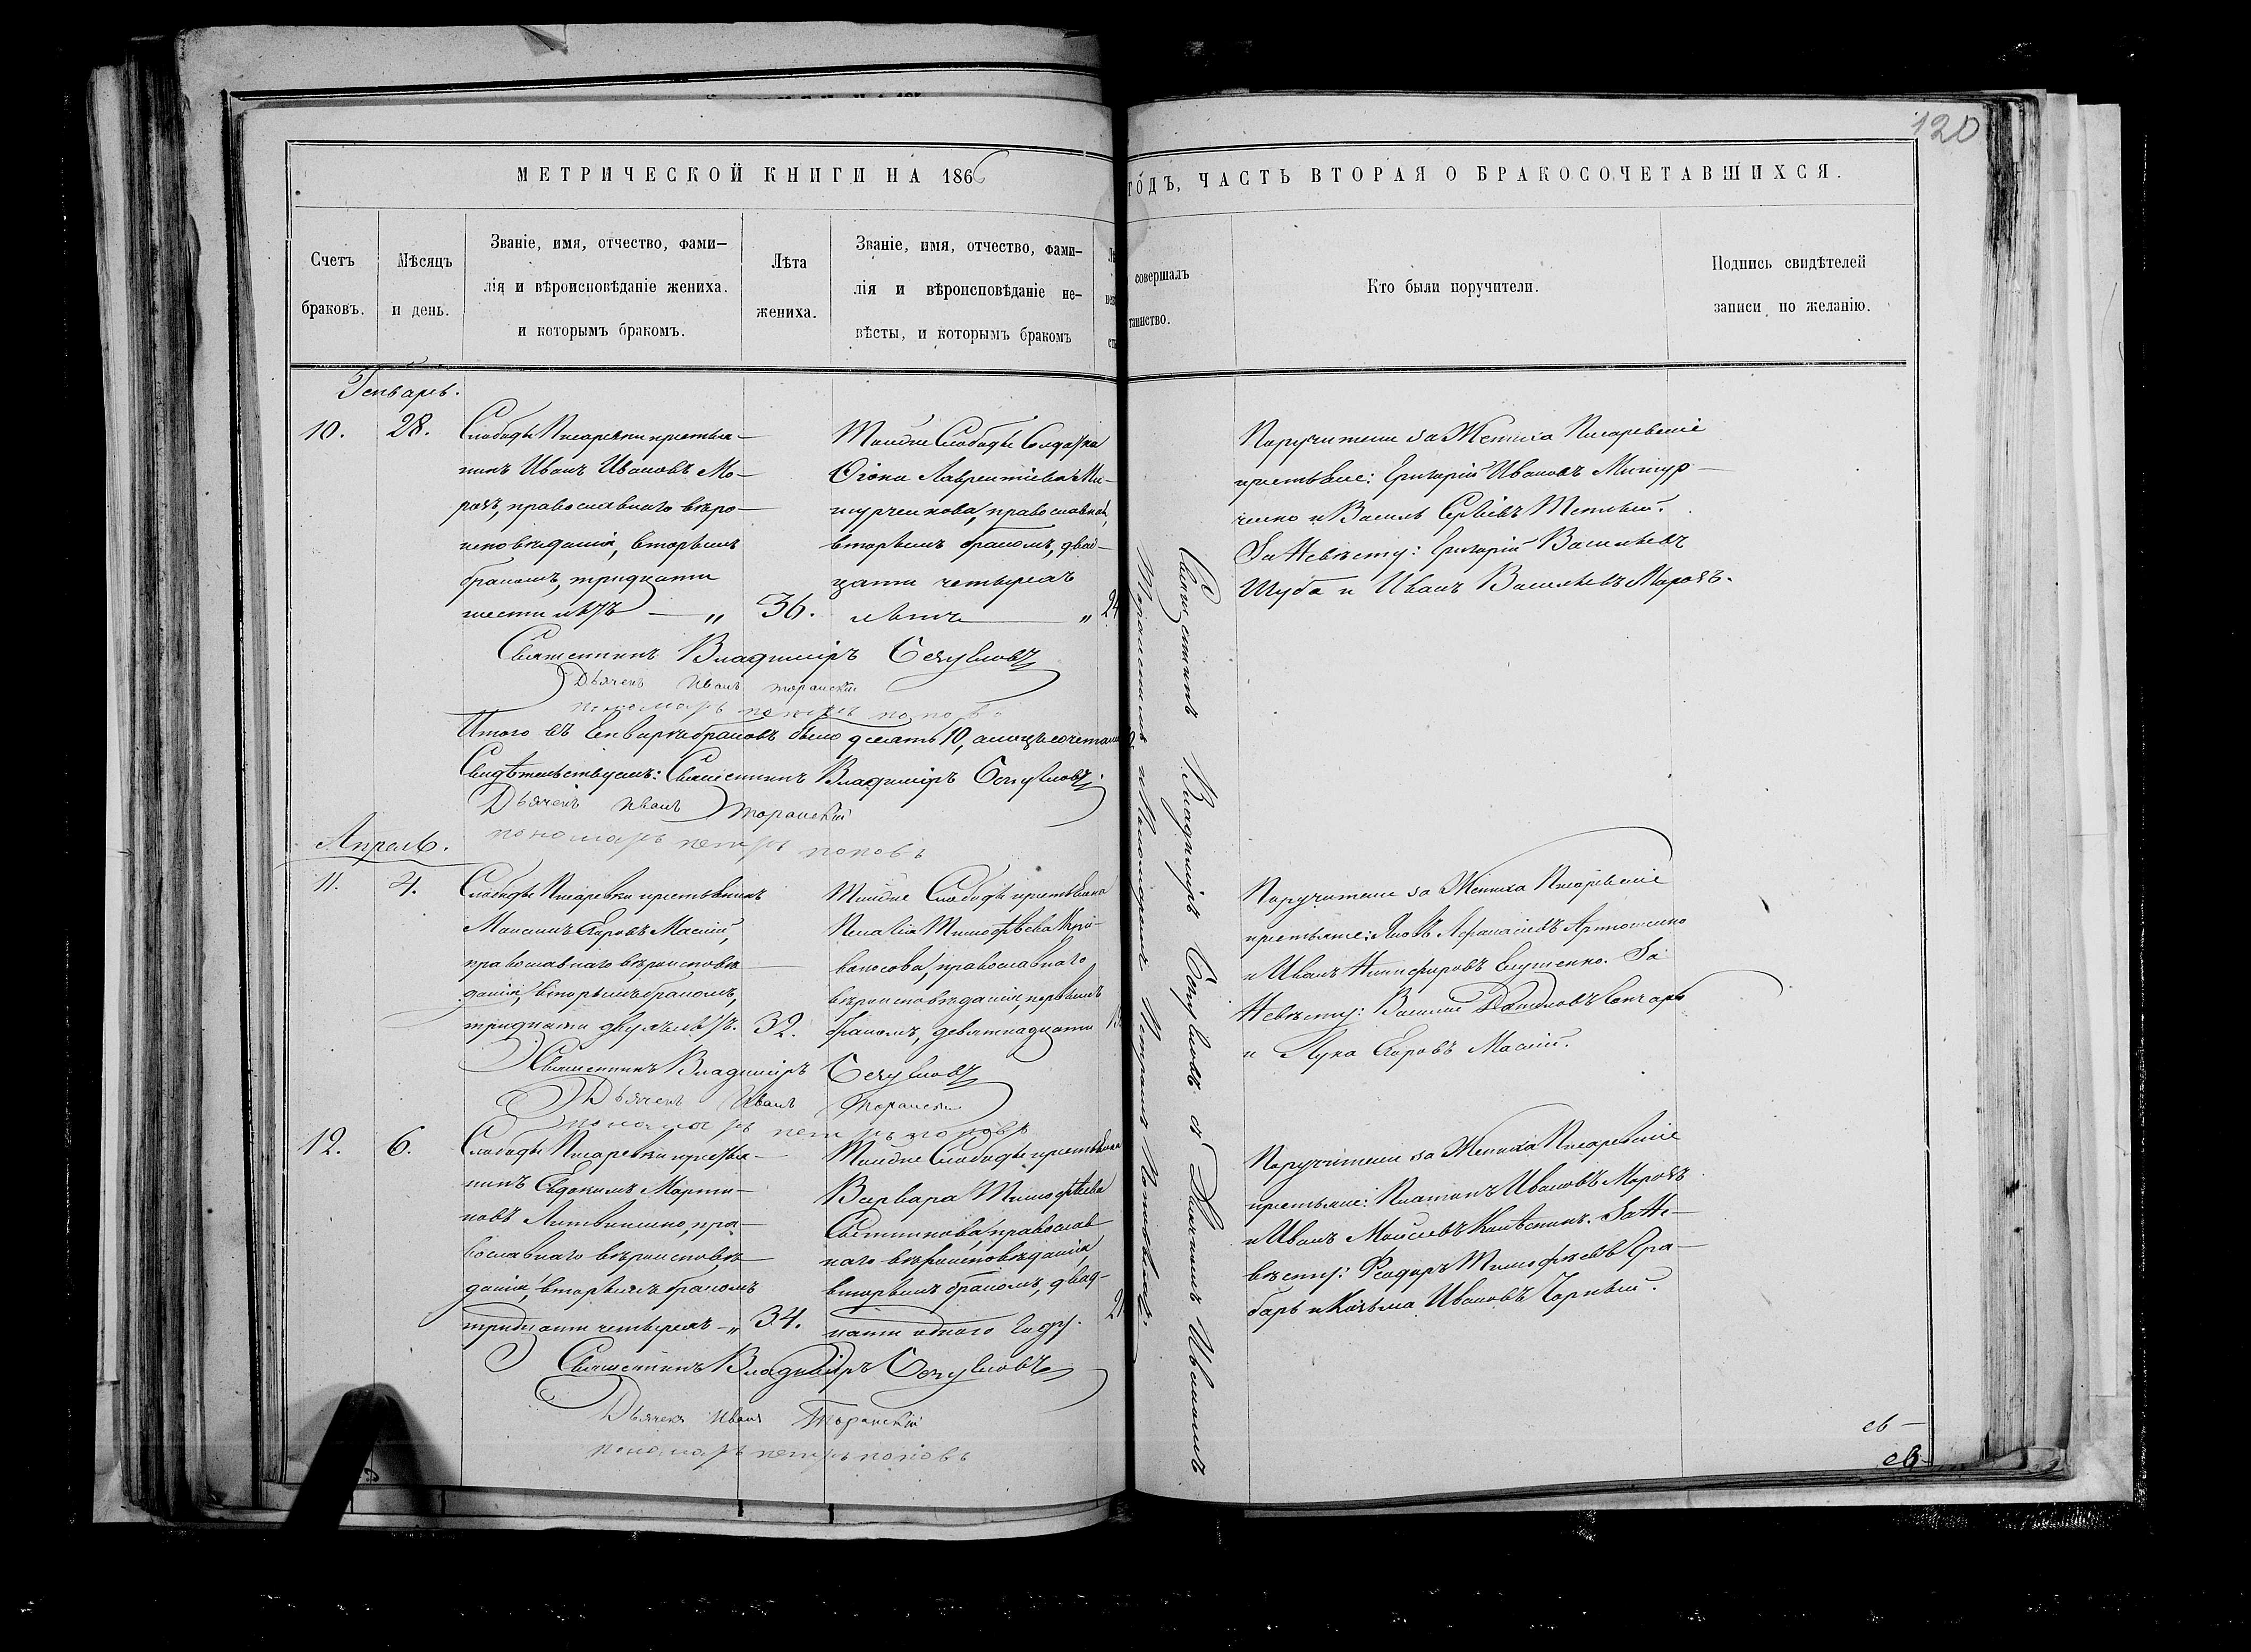 120
МЕТРИЧЕСКОЙ КНИГИ НА 1866
ГОДЪ, ЧАСТЬ ВТОРАЯ О БРАКОСОЧЕТАВШИХСЯ.
Счетъ
браковъ.
Мѣсяцъ
и день.
Званіе, имя, отчество, фами—
лія и вѣроисповѣданіе жениха.
и которымъ бракомъ.
Лѣта
жениха.
Званіе, имя, отчество, фами—
лія и вѣроисповѣданіе не—
вѣсты, и которымъ бракомъ
совершалъ
таинство.
Кто были поручители.
Подпись свидѣтелей
записи по желанію.
Генварь.
10.
28.
Слободы Писаревки крестья—
нинъ Иванъ Ивановъ Мо—
розъ, православнаго вѣро—
исповѣданія, вторымъ
бракомъ, тридцати
шести лѣтъ — „
36.
Тойже Слободы Солдатка
Лаврентіева
православной,
вторымъ бракомъ, двад—
цати четырехъ
лѣтъ „
24
Поручители за Жениха Писаревскіе
крестьяне: Григорій Ивановъ
и Василь
За Невѣсту: Григорій Васильевъ
Шуба и Иванъ Васильевъ Морозъ.
Священникъ Владиміръ
Дьячекъ Иванъ Торанскій
пономарь петръ поповъ
Итого въ Генварѣ браковъ было десять 10,
Свидѣтельствуемъ: Священникъ Владиміръ
Дьячекъ Иванъ Торанскій
пономарь петръ поповъ
Апрель.
11.
4.
Слободы Писаревки крестьянинъ
Максимъ Егоровъ Маслій,
православнаго вѣроисповѣ—
данія, вторымъ бракомъ,
тридцати двухъ лѣтъ.
32.
Тойже Слободы крестьянка
Пелагія Тимофѣева Кри—
воносова, православнаго
вѣроисповѣданія, первымъ
бракомъ, девятнадцати
Поручители за Жениха Писаревскіе
крестьяне: Яковъ Афанасіевъ
и Иванъ Никифоровъ За
Невѣсту: Василий Даниловъ Гончаръ
и Лука Егоровъ Маслій.
Священникъ Владиміръ
Дьячекъ Иванъ Торанскій
пономарь петръ поповъ
12.
6.
Слободы Писаревки крестья—
нинъ Евдокимъ Марти—
новъ Литвиненко, пра—
вославнаго вѣроисповѣ—
данія, вторымъ бракомъ
тридцати четырехъ — „
34.
Тойже Слободы крестьянка
Варвара Тимофѣева
православ
наго вѣроисповѣданія,
вторымъ бракомъ, двад—
цати одного году.
21
Поручители за Жениха Писаревскіе
крестьяне: Платонъ Ивановъ Морозъ
и Иванъ Моисеевъ За Не—
вѣсту: Феодоръ Тимофѣевъ Гра—
барь и Козьма Ивановъ Чорный.
Священникъ Владиміръ
Дьячекъ Иванъ Торанскій
пономарь петръ поповъ
Священникъ Владиміръ съ Дьячкомъ Иваномъ
Торанскимъ и Пономаремъ Петромъ Поповымъ.